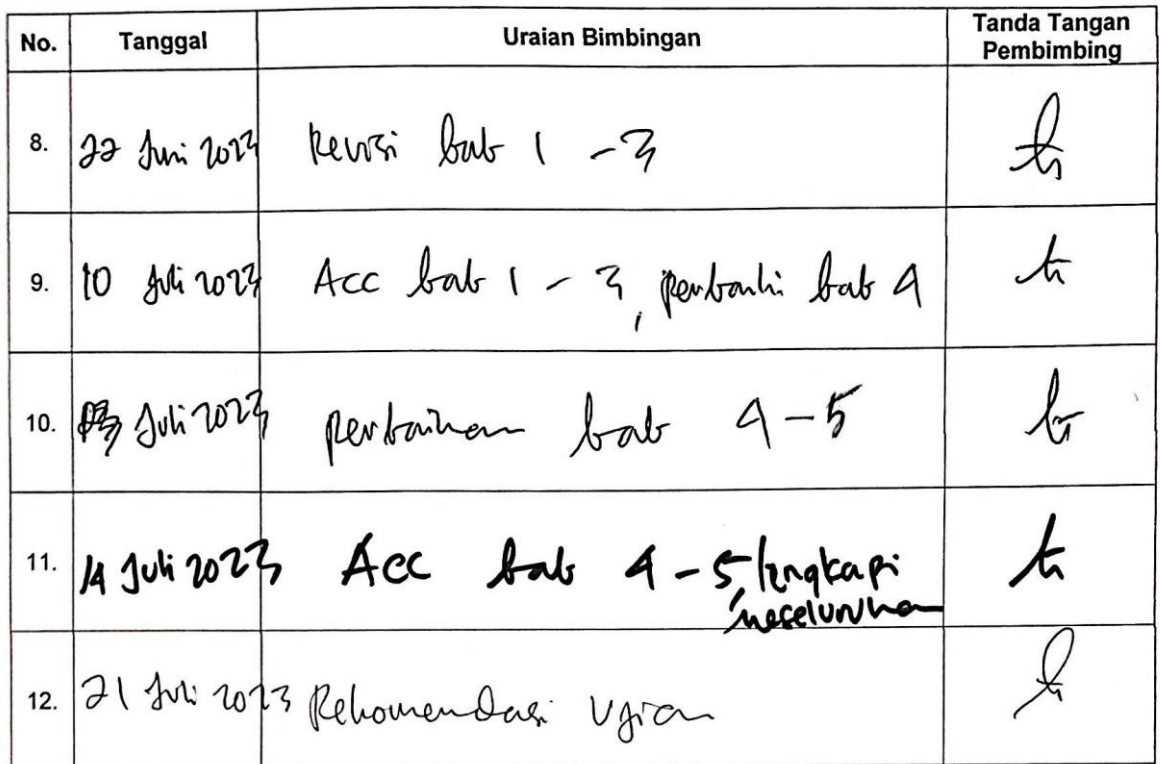 No. Tanggal Uraian Bimbingan Tanda Tangan
Pembimbing
8. 22 Juni 2023 Revisi bab 1 - 3
9. 10 Juli 2023 Acc bab 1 - 3, perbaiki bab 4
10. Juli 2023 perbaikan bab 4 - 5
11. 14 Juli 2023 Acc bab 4 - 5 lengkapi
keseluruhan
12. 21 Juli 2023 Rekomendasi Ujian